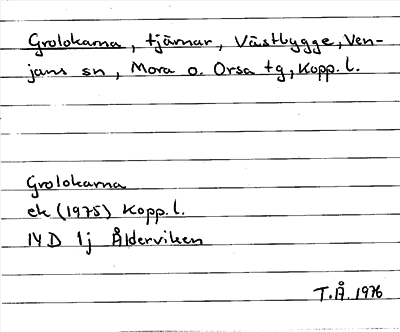 Grolokarna, tjärnar, Västbygge, Ven-
jans sn, Mora o. Orsa tg, Kopp. l.
Grolokarna
ek (1975) Kopp. l.
14D 1j Ålderviken
T.Å. 1976